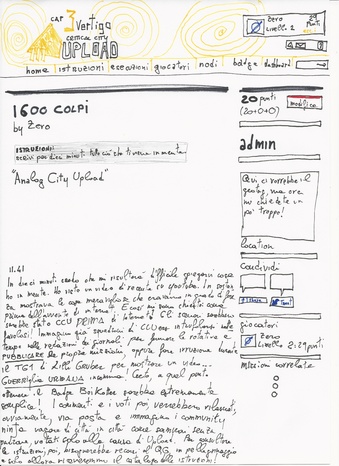 CAP 3 Vertigo
CRITICAL CITY
UPLOAD
Zero
Livello 2
29
Punti
home istruzioni esecuzioni giocatori nodi badge dashboard
1600 COLPI
by Zero
ISTRUZIONI:
scrivi per dieci minuti tutto ciò che ti viene in mente
"Analog City Upload"
20 punti
(20+0+0)
modifica
admin
Qui ci vorrebbe il
gestog, ma ora
mi chiedete un
po' troppo!
location
Condividi
Share
Tweet
giocatori
Zero
Livello 2
29 pti
Missioni correlate
11.41
In dieci minuti credo che mi risulterà difficile spiegarvi cosa
ho in mente. Ho visto un video di recente su youtube. In sostanza
za mostrava le cose meravigliose che eravamo in grado di fare
prima dell'avvento di internet. E così mi sono chiesto come
sarebbe stato CCU PRIMA di internet. CE senza sarebbero
favolosi! Immagino già squadroni di CCUers intrufolarsi nello
tempo nelle redazioni dei giornali per fermare le rotative e
PUBBLICARE le proprie missioni, oppure fare irruzione durante
il TG1 di Lilli Gruber per mostrare un video...
GUERRIGLIA URBANA insomma! Certo, a quel punto
il Badge BoikCotter sarebbe estremamente
semplice. I commenti e i voti poi, verrebbero rilasciati,
ovviamente, via posta e immagino i community
ninja vagare di città in città come samurai senza
padrone, votati solo alla causa di Upload. Per consultare
le istruzioni, poi, bisognerebbe recarsi al QG in pellegrinaggio
e solo allora riceveremmo il catalogo delle istruzioni!